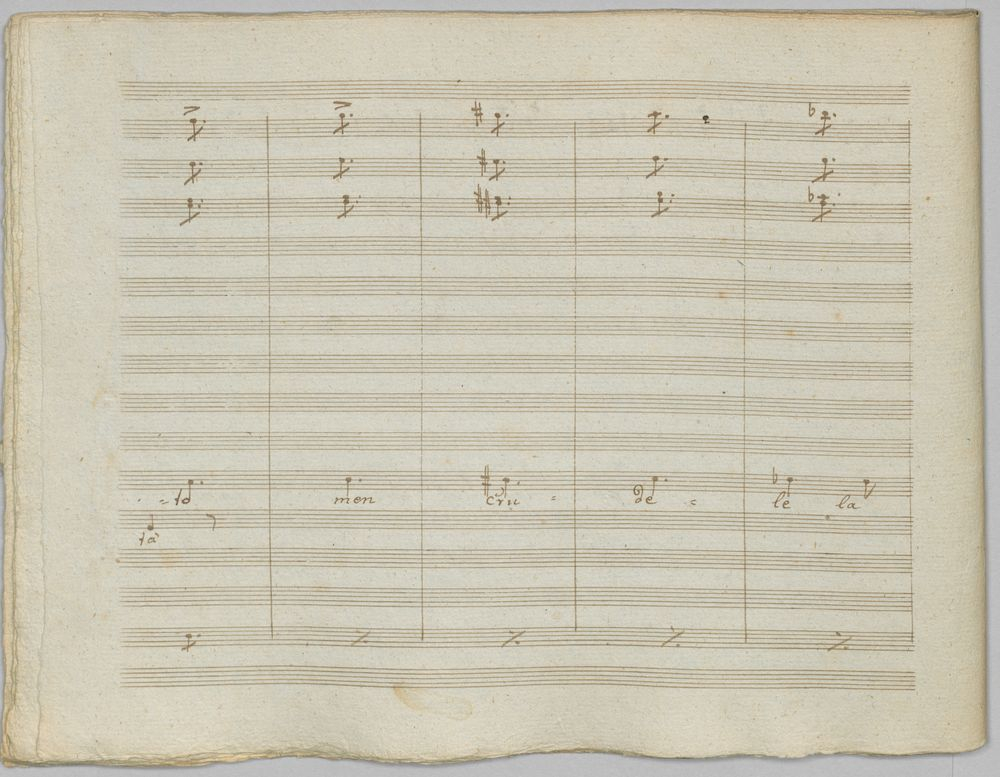 - to men cru - de - le la
tà